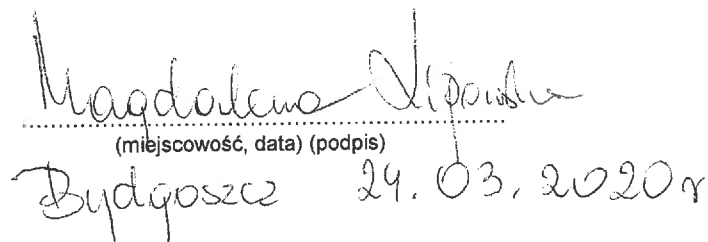 Magdalena Lipowska
(miejscowość, data) (podpis)
Bydgoszcz 24.03.2020r